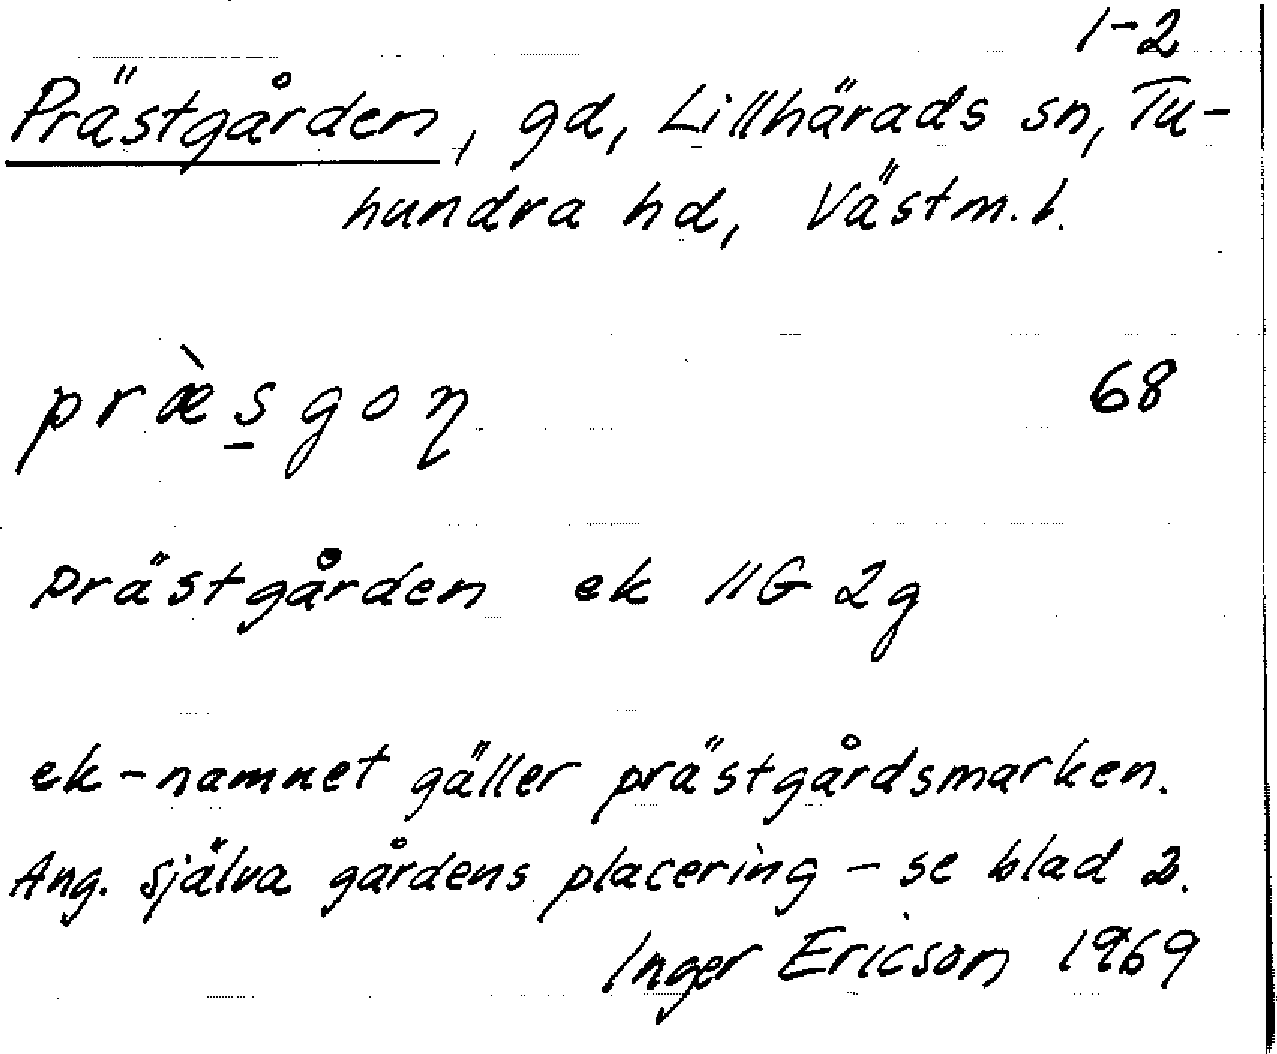 1-2
Prästgården, gd, Lillhärads sn, Tu-
hundra hd, Västm. l.
præ̀s̲goɳ 68
Prästgården ek 11G 2g
ek-namnet gäller prästgårdsmarken.
Ang. själva gårdens placering - se blad 2.
Inger Ericson 1969